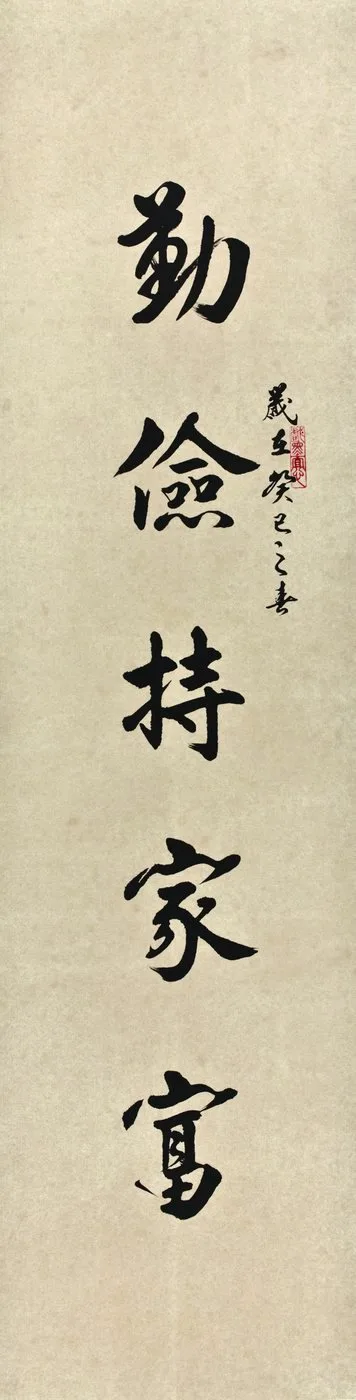 勤儉持家富
歲在癸巳之春